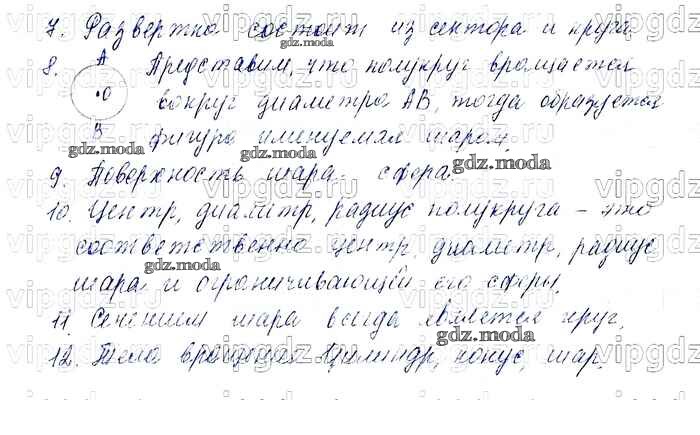 7. Развертка состоит из сектора и круга.
8. A O B Представим, что полукруг вращается
вокруг диаметра AB, тогда образуется
фигура именуемая шаром.
9. Поверхность шара - сфера.
10. Центр, диаметр, радиус полукруга – это
соответственно центр, диаметр, радиус
шара и ограничивающей его сферы.
11. Сечением шара всегда является круг.
12. Тела вращения Цилиндр, конус, шар.
gdz.moda
vipgdz